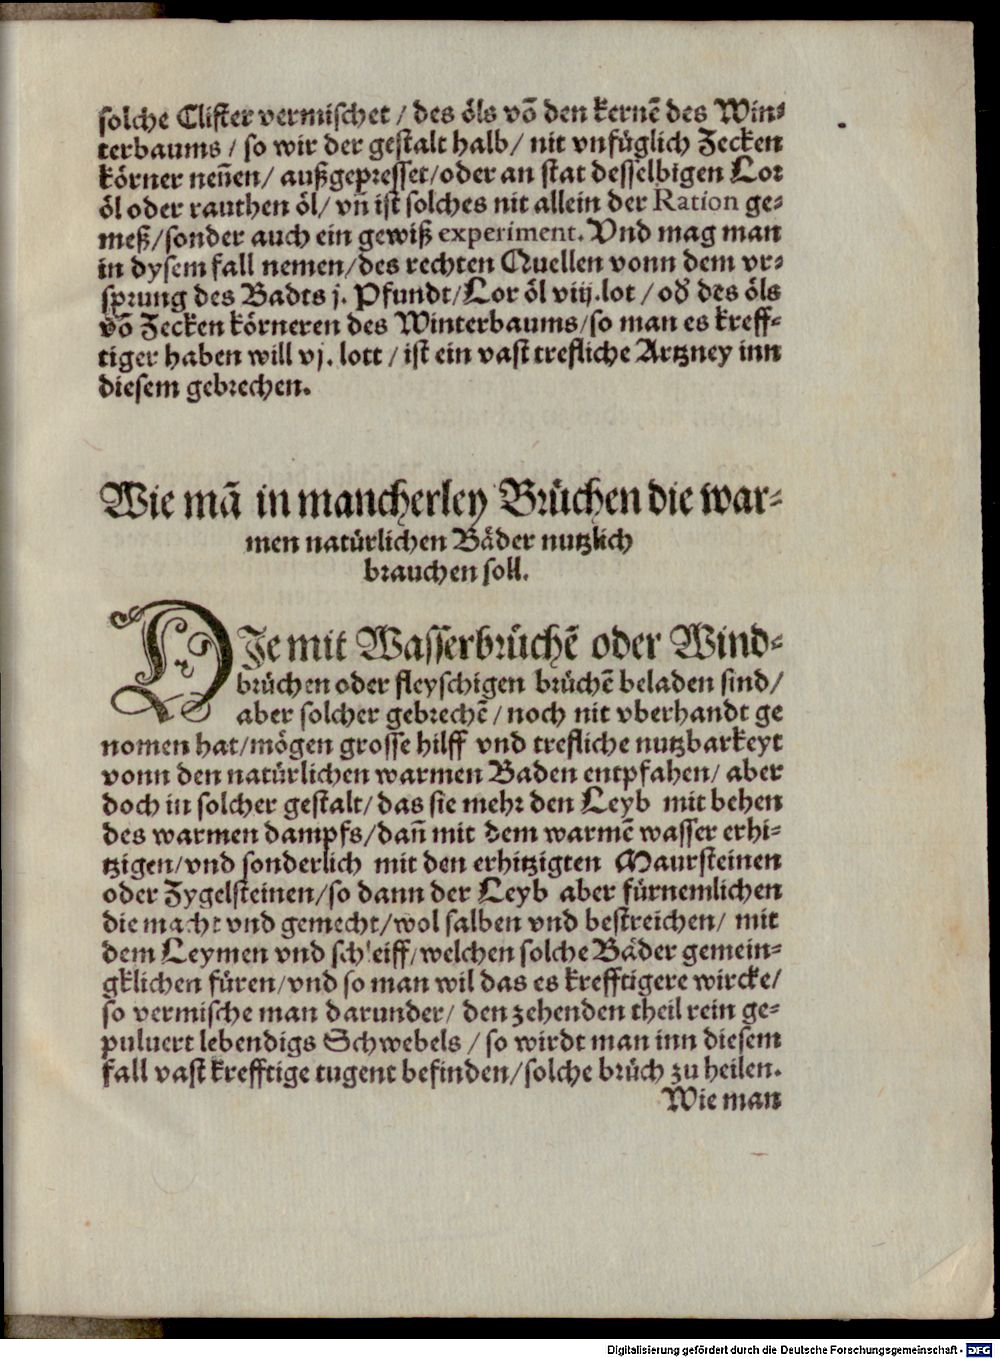 solche Clister vermischet / des öls võ den kernẽ des Win⸗
terbaums / so wir der gestalt halb / nit vnfüglich Zecken
körner neñen / außgepresset / oder an stat desselbigen Lor
öl oder rauthen öl / vñ ist solches nit allein der Ration ge⸗
meß / sonder auch ein gewiß experiment. Vnd mag man
in dysem fall nemen / des rechten Quellen vonn dem vr⸗
sprung des Badts j. Pfundt / Lor öl viij. lot / od des öls
võ Zecken körneren des Winterbaums / so man es kreff⸗
tiger haben will vj. lott / ist ein vast trefliche Artzney inn
diesem gebrechen.
Wie mã in mancherley Brüchen die war⸗
men natürlichen Bäder nutzlich
brauchen soll.
DIe mit Wasserbrüchẽ oder Wind⸗
brüchen oder fleyschigen brüchẽ beladen sind /
aber solcher gebrechẽ / noch nit vberhandt ge
nomen hat / mögen grosse hilff vnd trefliche nutzbarkeyt
vonn den natürlichen warmen Baden entpfahen / aber
doch in solcher gestalt / das sie mehr den Leyb mit behen
des warmen dampfs / dañ mit dem warmẽ wasser erhi⸗
tzigen / vnd sonderlich mit den erhitzigten Maursteinen
oder Zygelsteinen / so dann der Leyb aber fürnemlichen
die macht vnd gemecht / wol salben vnd bestreichen / mit
dem Leymen vnd schleiff / welchen solche Bäder gemein⸗
gklichen füren / vnd so man wil das es krefftigere wircke /
so vermische man darunder / den zehenden theil rein ge⸗
puluert lebendigs Schwebels / so wirdt man inn diesem
fall vast krefftige tugent befinden / solche brüch zu heilen.
Wie man
Digitalisierung gefördert durch die Deutsche Forschungsgemeinschaft - DFG